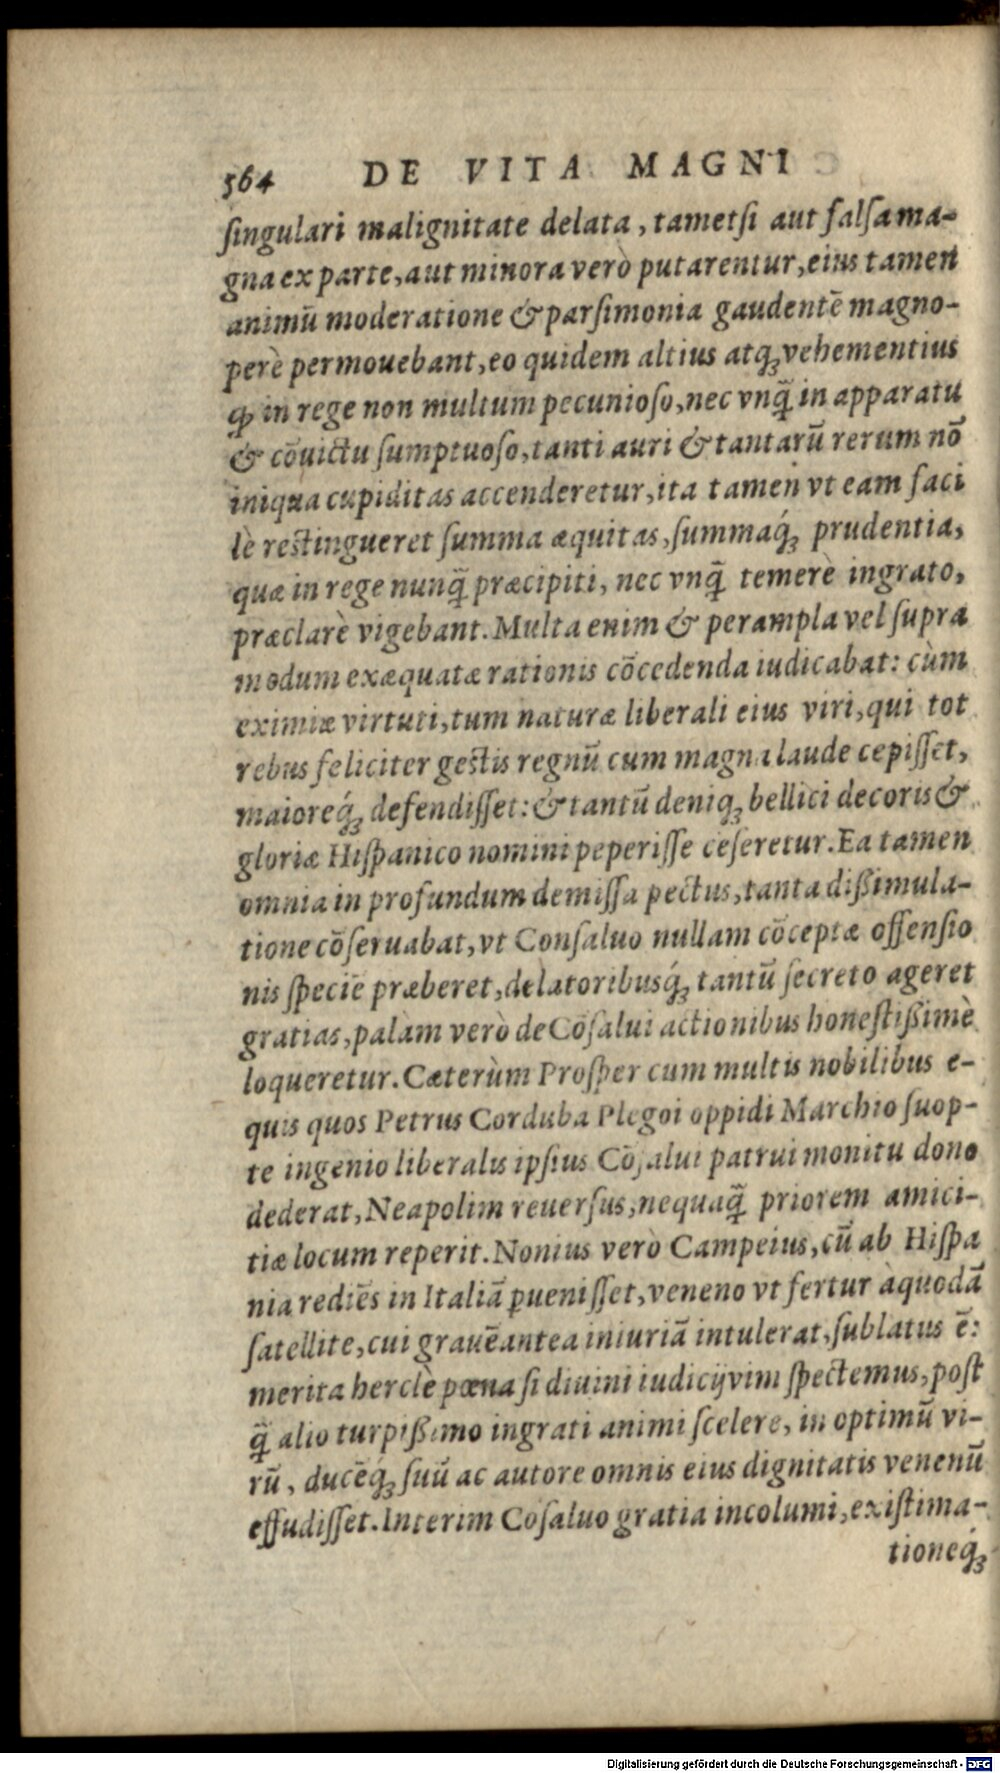 564 DE VITA MAGNI
ſingulari malignitate delata, tametſi aut falſa ma-
gna ex parte, aut minora verò putarentur, eius tamen
animū moderatione & parſimonia gaudentē magno-
perè permouebant, eo quidem altius atq́ꝫ vehementius
ꝙ in rege non multum pecunioſo, nec vnq̄ in apparatu
& cōuictu ſumptuoſo, tanti auri & tantarū rerum nō
iniqua cupiditas accenderetur, ita tamen vt eam faci
lè reſtingueret ſumma æquitas, ſummaq́ꝫ prudentia,
quæ in rege nunq̄ præcipiti, nec vnq̄ temerè ingrato,
præclarè vigebant. Multa enim & perampla vel ſupra
modum exæquatæ rationis cōcedenda iudicabat: cùm
eximiæ virtuti, tum naturæ liberali eius viri, qui tot
rebus feliciter geſtis regnū cum magna laude cepiſſet,
maioreq́ꝫ defendiſſet: & tantū deniqꝫ bellici decoris &
gloriæ Hiſpanico nomini peperiſſe ceſeretur. Ea tamen
omnia in profundum demiſſa pectus, tanta dißimula-
tione cōſeruabat, vt Conſaluo nullam cōceptæ offenſio
nis ſpeciē præberet, delatoribusq́ꝫ tantū ſecreto ageret
gratias, palàm verò de Cōſalui actionibus honeſtißimè
loqueretur. Cæterùm Proſper cum multis nobilibus e-
quis quos Petrus Corduba Plegoi oppidi Marchio ſuop-
te ingenio liberalis ipſius Cōſalui patrui monitu dono
dederat, Neapolim reuerſus, nequaq̄ priorem amici-
tiæ locum reperit. Nonius verò Campeius, cū ab Hiſpa
nia rediēs in Italiā ꝑueniſſet, veneno vt fertur à quodā
ſatellite, cui grauē antea iniuriā intulerat, ſublatus ē:
merita herclè pœna ſi diuini iudicij vim ſpectemus, poſt
q̄ alio turpißimo ingrati animi ſcelere, in optimū vi-
rū, ducēq́ꝫ ſuū ac autore omnis eius dignitatis venenū
effudiſſet. Interim Coſaluo gratia incolumi, exiſtima-
tioneq́ꝫ
Digitalisierung gefördert durch die Deutsche Forschungsgemeinschaft - DFG